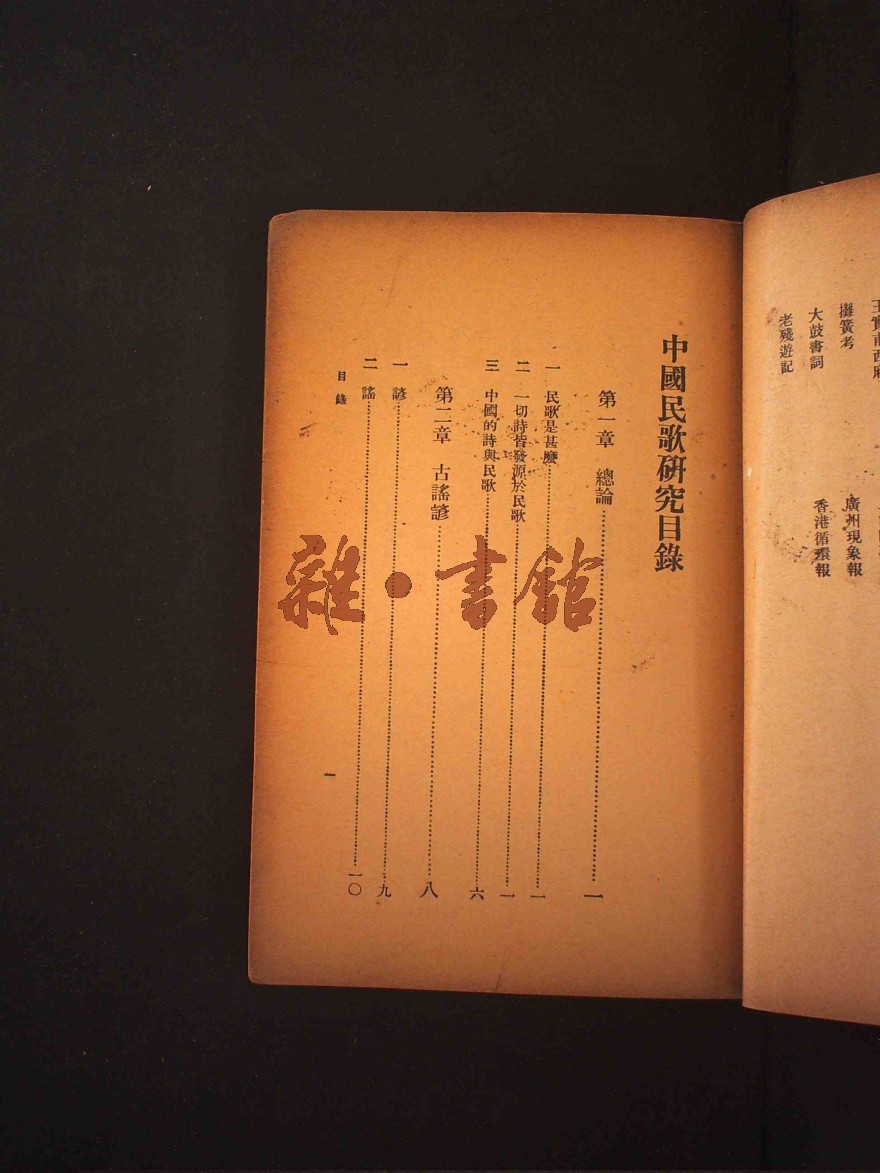 王實甫西廂
攤簧考
大鼓書詞
老殘遊記
廣州現象報
香港循環報
中國民歌研究目錄
第一章 總論……一
一 民歌是甚麼……一
二 一切詩皆發源於民歌……一
三 中國的詩與民歌……六
第二章 古謠諺……八
一 諺……九
二 謠……一〇
目錄
一
雜·書館